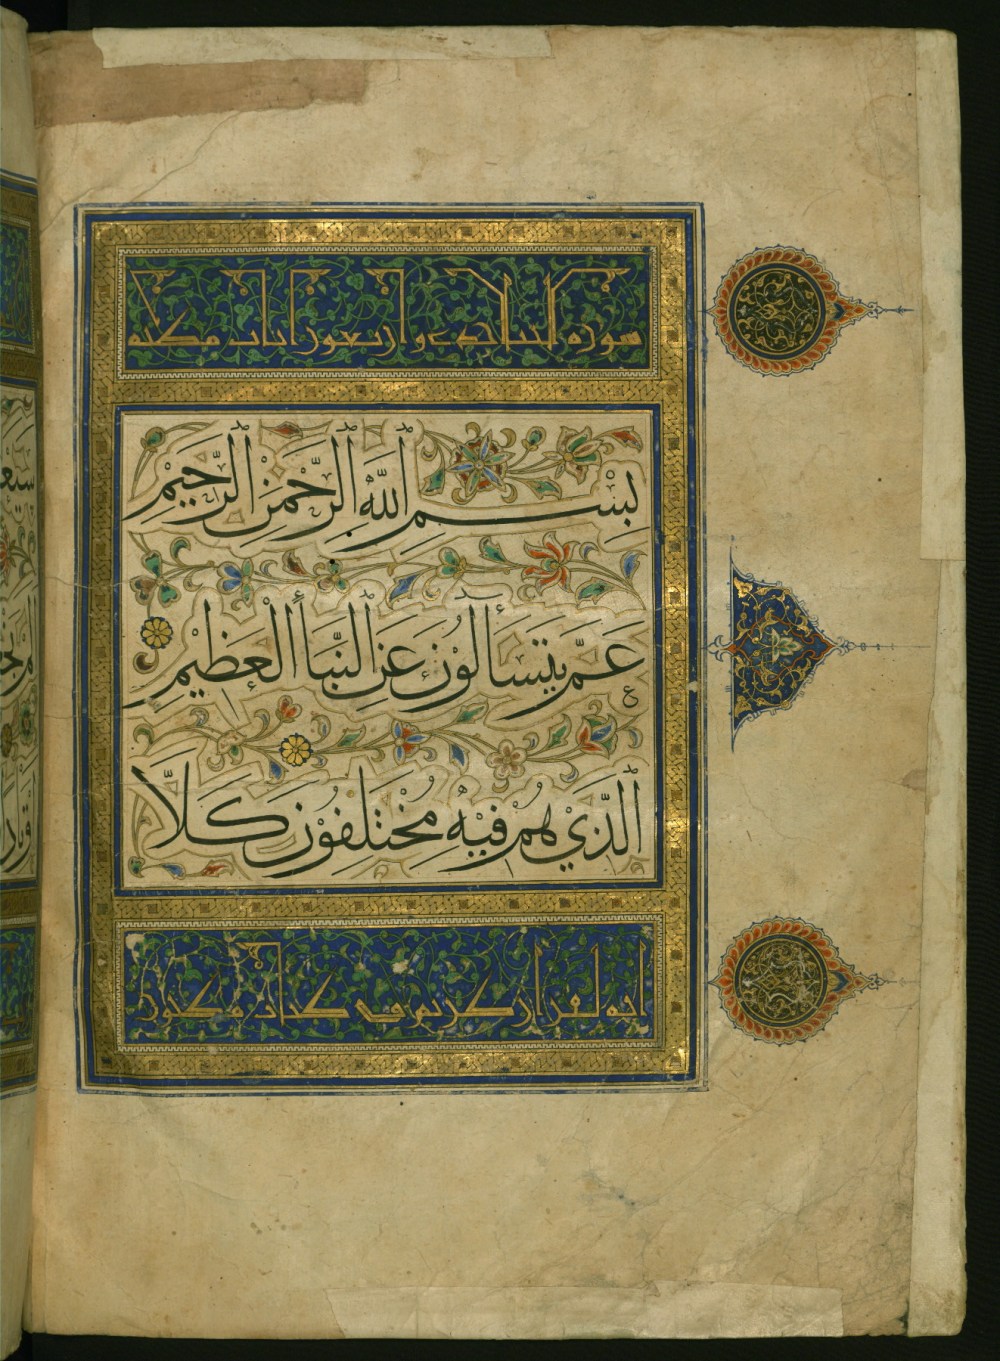 سورة النبا احدى و اربعون ايات مكية
بِسْمِ اللَّهِ الرَّحْمَنِ الرَّحِيْمِ
عَمَّ يَتَسَاَلُوْنَ عَنِ النَّبَأِ الْعَظِيْمِ
الَّذِيْ هُمْ فِيْهِ مُخْتَلِفُوْنَ كَلَّا
انه لقران كريم في كتاب مكنون